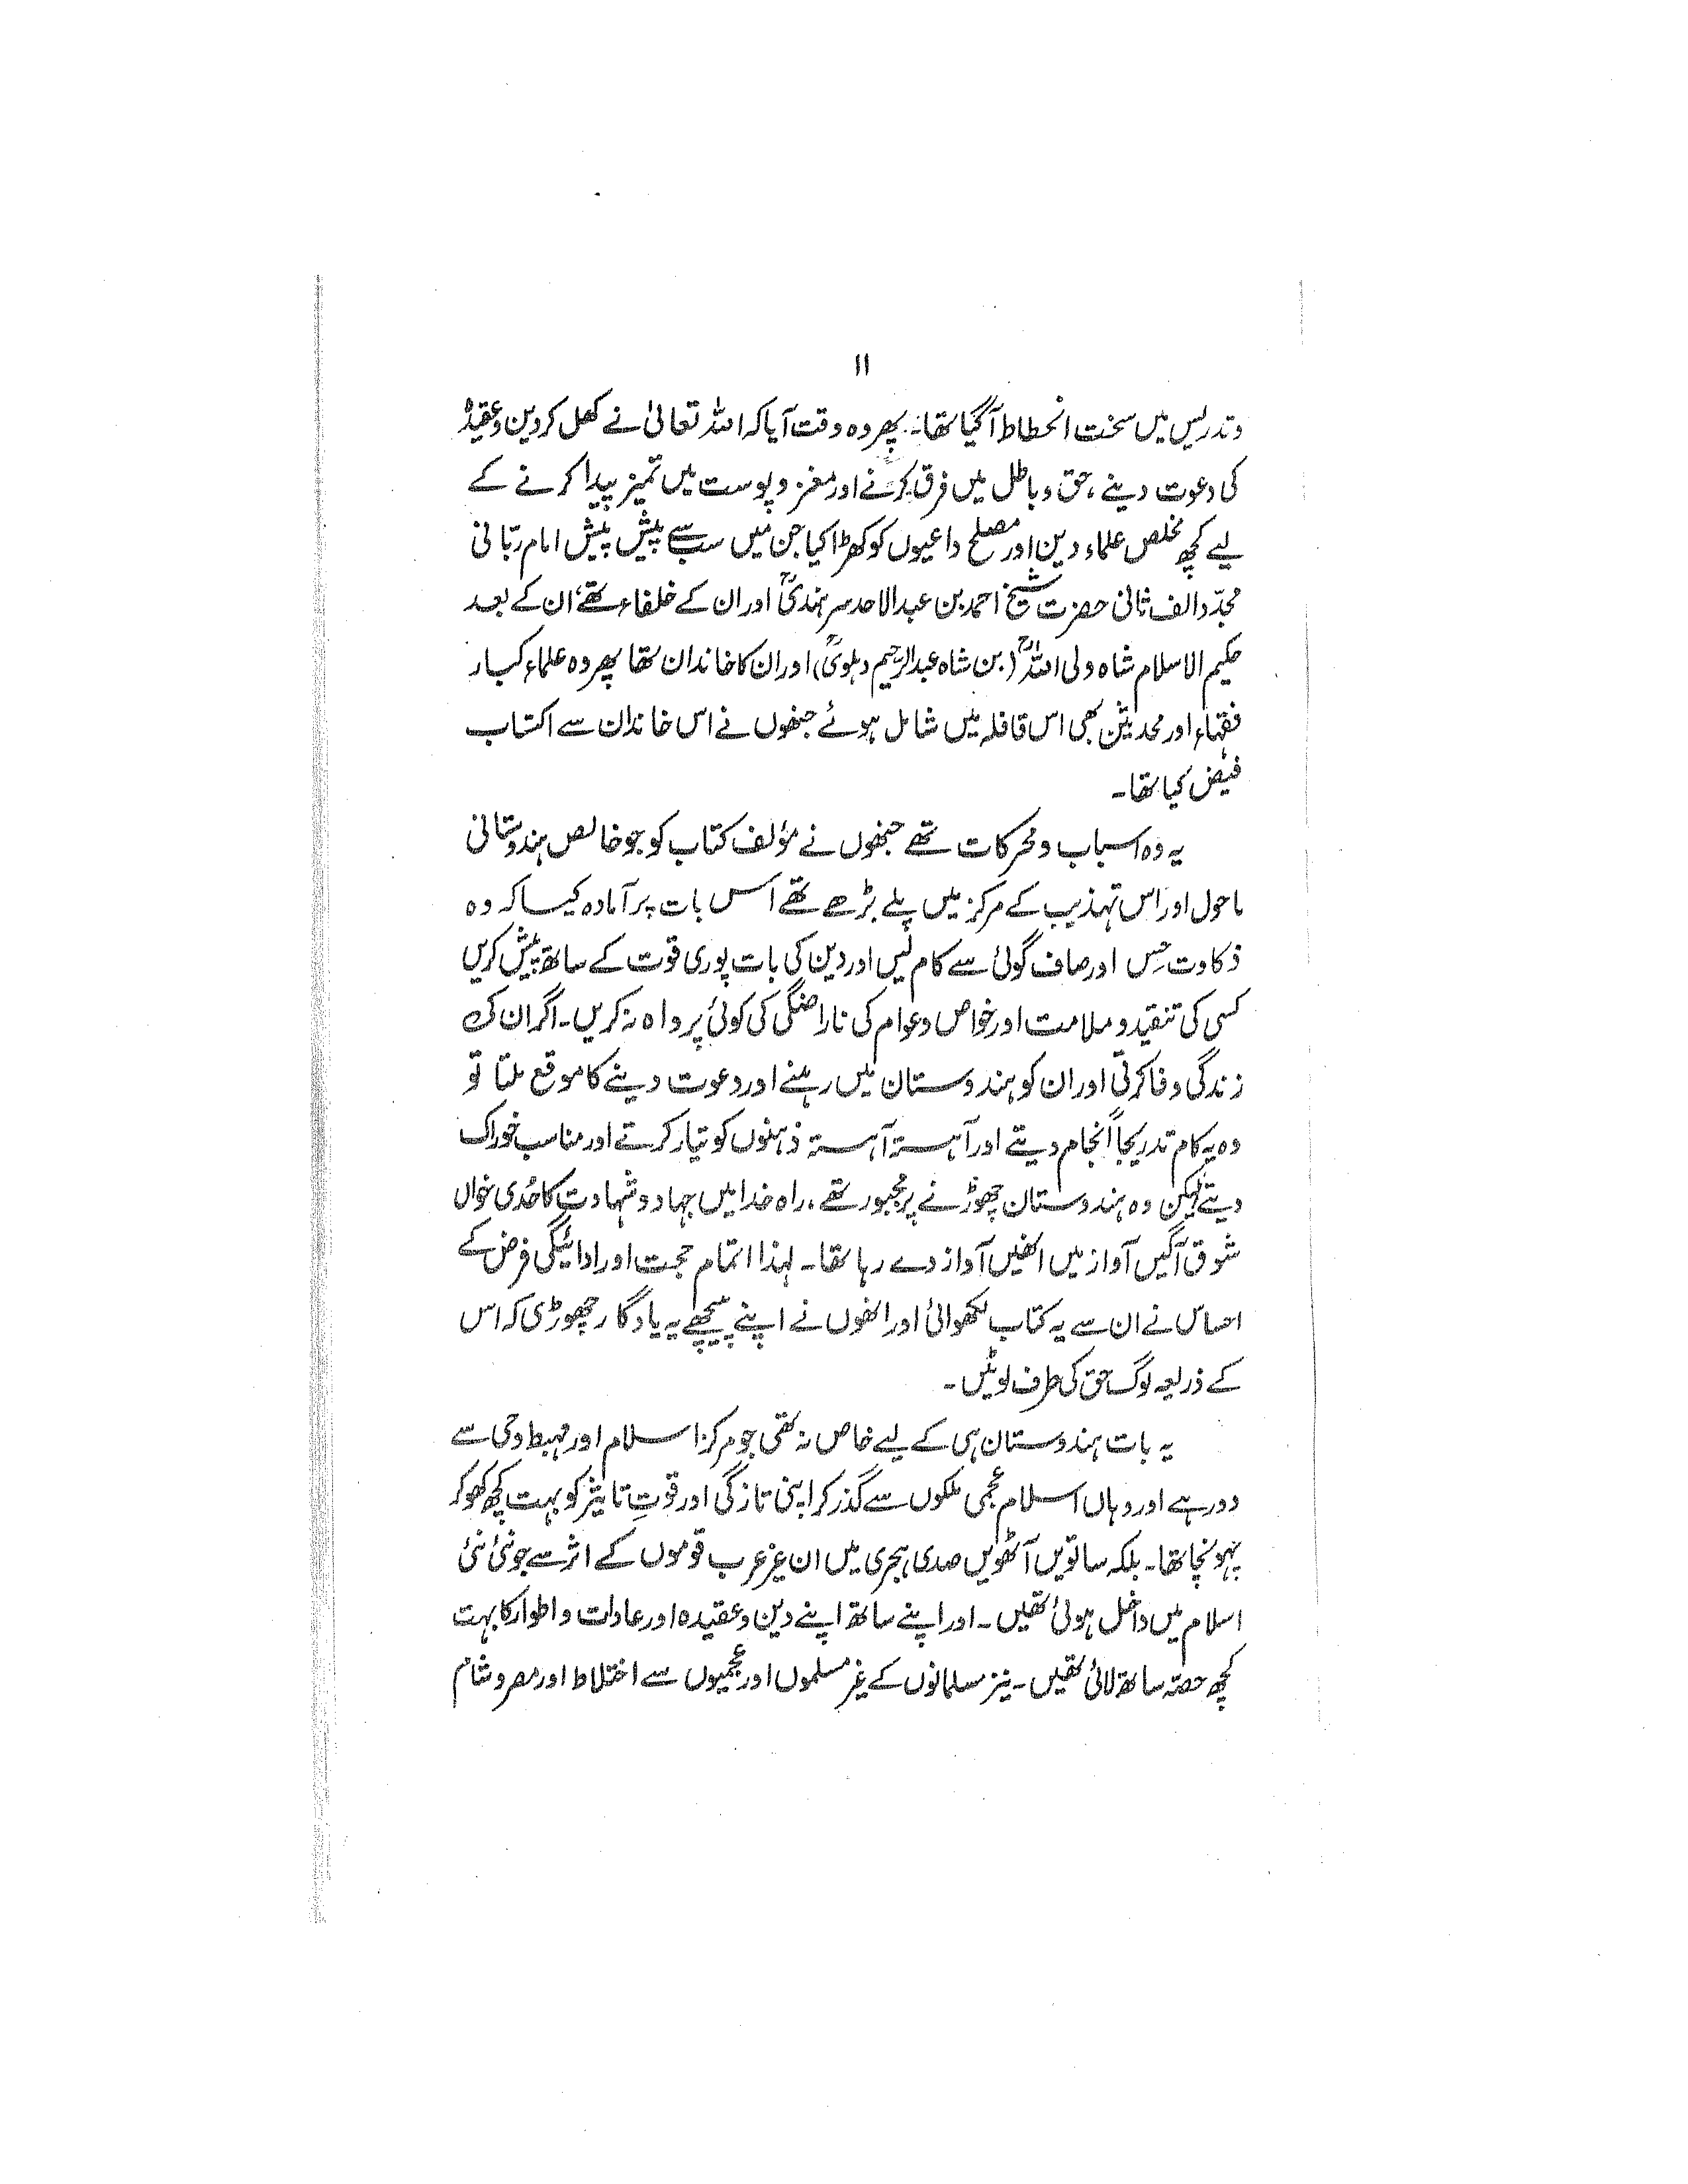 ۱۱
وتدریس میں سخت انحطاط آگیا تھا۔ پھر وہ وقت آیا کہ اللہ تعالیٰ نے کھل کر دین وعقیدہ
کی دعوت دینے، حق و باطل میں فرق کرنے اور مغز و پوست میں تمیز پیدا کرنے کے
لیے کچھ مخلص علماء دین اور مصلح داعیوں کو کھڑا کیا جن میں سب سے پیش پیش امام ربّانی
مجدّد الف ثانی حضرت شیخ احمد بن عبدالاحد سرہندیؒ اور ان کے خلفاء تھے، ان کے بعد
حکیم الاسلام شاہ ولی اللہؒ (بن شاہ عبدالرحیم دہلویؒ) اور ان کا خاندان تھا پھر وہ علماء کبار
فقہاء اور محدثین بھی اس قافلہ میں شامل ہوئے جنھوں نے اس خاندان سے اکتساب
فیض کیا تھا۔
یہ وہ اسباب و محرکات تھے جنھوں نے مؤلف کتاب کو جو خالص ہندوستانی
ماحول اور اس تہذیب کے مرکز میں پلے بڑھے تھے اس بات پر آمادہ کیا کہ وہ
ذکاوت حِس اور صاف گوئی سے کام لیں اور دین کی بات پوری قوت کے ساتھ پیش کریں
کسی کی تنقید و ملامت اور خواص و عوام کی ناراضگی کی کوئی پرواہ نہ کریں۔ اگر ان کی
زندگی وفا کرتی اور ان کو ہندوستان میں رہنے اور دعوت دینے کا موقع ملتا تو
وہ یہ کام تدریجاً انجام دیتے اور آہستہ آہستہ ذہنوں کو تیار کرتے اور مناسب خوراک
دیتے لیکن وہ ہندوستان چھوڑنے پر مجبور تھے، راہ خدا میں جہاد و شہادت کا حُدی خواں
شوق آگیں آواز میں انھیں آواز دے رہا تھا۔ لہذا اتمام حجت اور ادائیگی فرض کے
احساس نے ان سے یہ کتاب لکھوائی اور انھوں نے اپنے پیچھے یہ یادگار چھوڑی کہ اس
کے ذریعہ لوگ حق کی طرف لوٹیں۔
یہ بات ہندوستان ہی کے لیے خاص نہ تھی جو مرکز اسلام اور مہبط وحی سے
دور ہے اور وہاں اسلام عجمی ملکوں سے گذر کر اپنی تازگی اور قوتِ تاثیر کو بہت کچھ کھو کر
پہونچا تھا۔ بلکہ ساتویں آٹھویں صدی ہجری میں ان غیر عرب قوموں کے اثر سے جو نئی نئی
اسلام میں داخل ہوئی تھیں۔ اور اپنے ساتھ اپنے دین و عقیدہ اور عادات و اطوار کا بہت
کچھ حصّہ ساتھ لائی تھیں۔ نیز مسلمانوں کے غیر مسلموں اور عجمیوں سے اختلاط اور مصر و شام